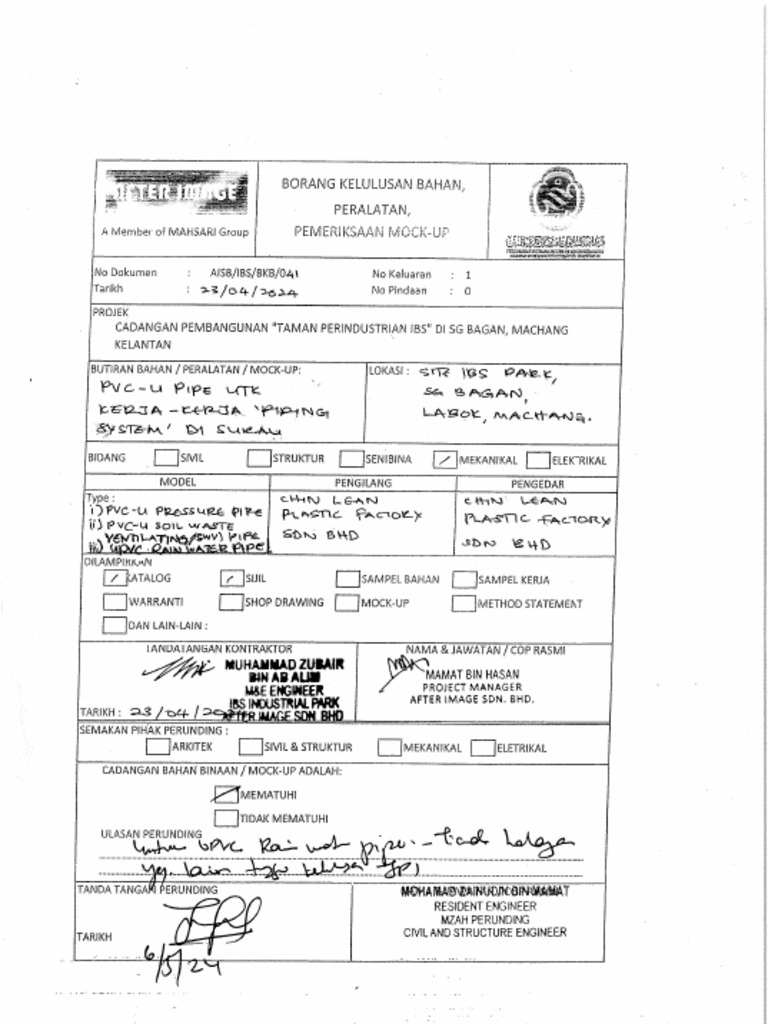 AFTER IMAGE
A Member of MAHSARI Group
BORANG KELULUSAN BAHAN,
PERALATAN,
PEMERIKSAAN MOCK-UP
No Dokumen : AISB/IBS/BKB/041
No Keluaran : 1
Tarikh : 23/04/2024
No Pindaan : 0
PROJEK
CADANGAN PEMBANGUNAN "TAMAN PERINDUSTRIAN IBS" DI SG BAGAN, MACHANG
KELANTAN
BUTIRAN BAHAN / PERALATAN / MOCK-UP:
PVC-U PIPE UTK
KERJA-KERJA 'PIPING
SYSTEM' DI SURAU
LOKASI : SITE IBS PARK,
SG BAGAN,
LABOK, MACHANG.
BIDANG SIVIL STRUKTUR SENIBINA / MEKANIKAL ELEKTRIKAL
MODEL PENGILANG PENGEDAR
Type :
i) PVC-U PRESSURE PIPE
ii) PVC-U SOIL WASTE
VENTILATING/(SWV) PIPE
iii) UPVC RAIN WATER PIPE
CHIN LEAN
PLASTIC FACTORY
SDN BHD
CHIN LEAN
PLASTIC FACTORY
SDN BHD
DILAMPIRKAN
/ KATALOG / SIJIL SAMPEL BAHAN SAMPEL KERJA
WARRANTI SHOP DRAWING MOCK-UP METHOD STATEMENT
DAN LAIN-LAIN :
TANDATANGAN KONTRAKTOR
MUHAMMAD ZUBAIR
BIN AB ALIM
M&E ENGINEER
IBS INDUSTRIAL PARK
AFTER IMAGE SDN BHD
TARIKH : 23/04/20
NAMA & JAWATAN / COP RASMI
MAMAT BIN HASAN
PROJECT MANAGER
AFTER IMAGE SDN. BHD.
SEMAKAN PIHAK PERUNDING :
ARKITEK SIVIL & STRUKTUR MEKANIKAL ELETRIKAL
CADANGAN BAHAN BINAAN / MOCK-UP ADALAH:
/ MEMATUHI
TIDAK MEMATUHI
ULASAN PERUNDING
UPVC Rain pipe - Tiada halangan
yg. lain
TANDA TANGAN PERUNDING
TARIKH
6/5/24
MOHAMAD ZAINUDIN BIN MAMAT
RESIDENT ENGINEER
MZAH PERUNDING
CIVIL AND STRUCTURE ENGINEER